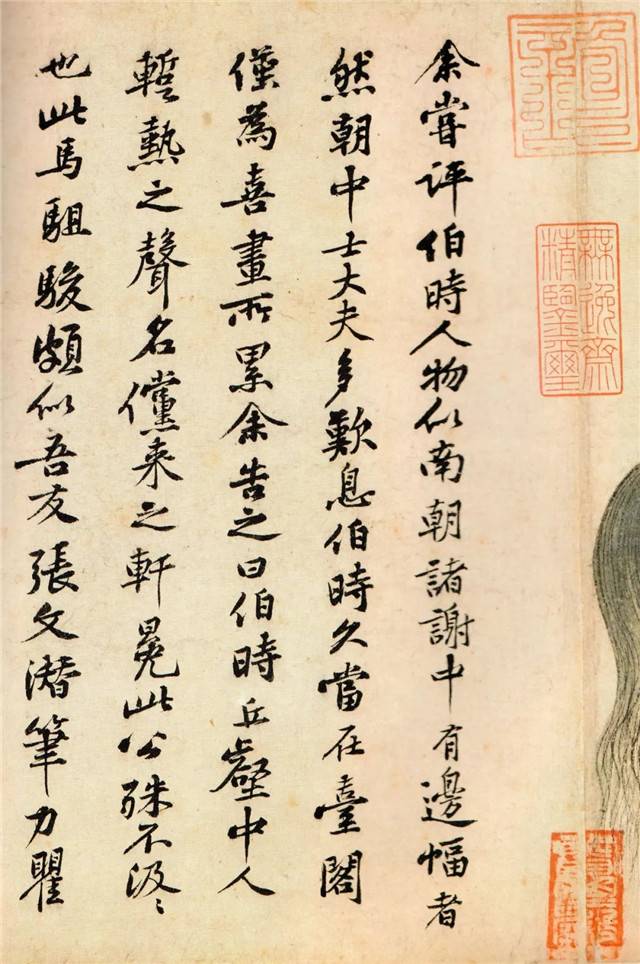 無逸齋
精鑒璽
余嘗評伯時人物似南朝諸謝中有邊幅者
然朝中士大夫多歎息伯時久當在臺閣
僅為喜畫所累余告之曰伯時丘壑中人
暫熱之聲名儻来之軒冕此公殊不汲〻
也此馬駔駿頗似吾友張文潛筆力瞿